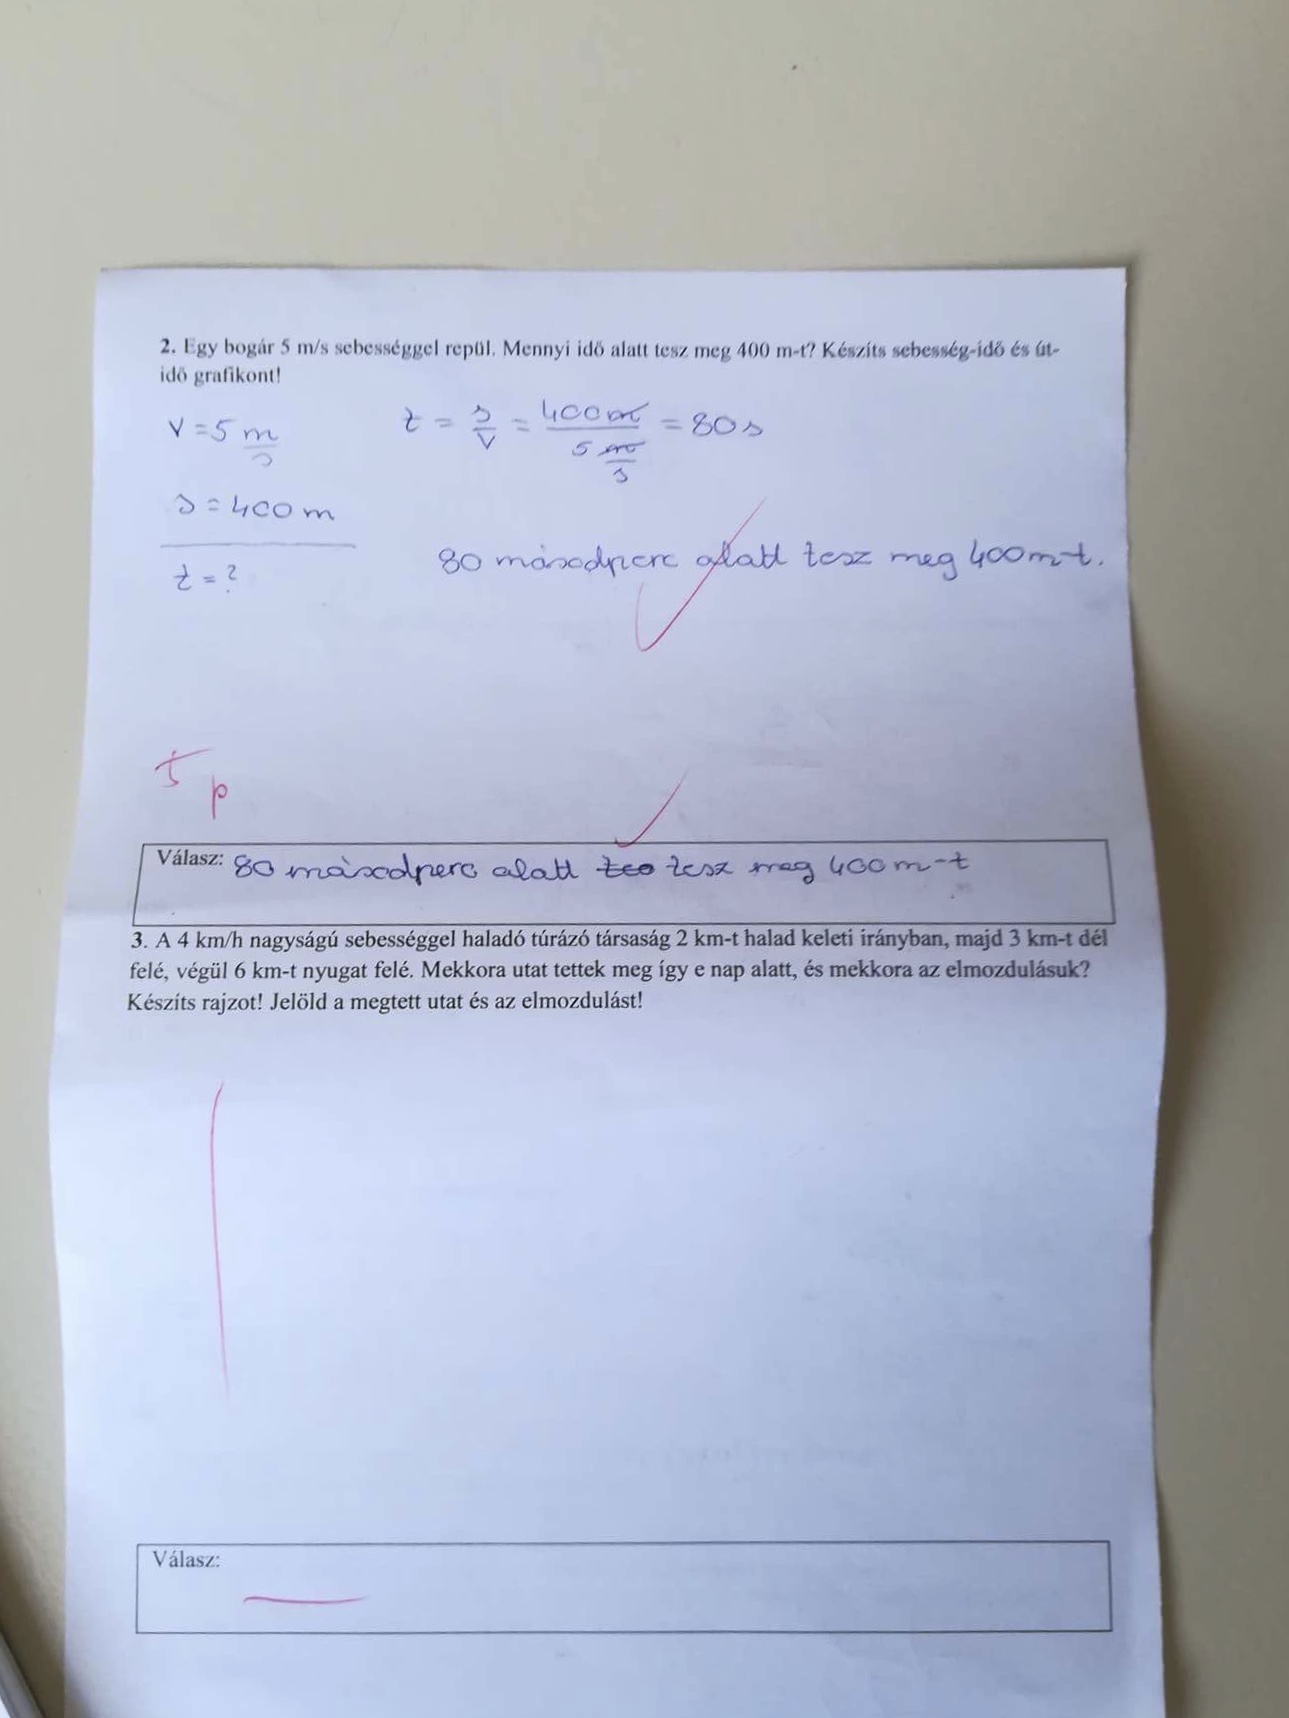 2. Egy bogár 5 m/s sebességgel repül. Mennyi idő alatt tesz meg 400 m-t? Készíts sebesség-idő és út-
idő grafikont!
v = 5 m/s
t = s/v = 400m / 5 m/s = 80s
s = 400 m
t = ?
80 másodperc alatt tesz meg 400m-t.
5 p
Válasz: 80 másodperc alatt teo tesz meg 400m-t
3. A 4 km/h nagyságú sebességgel haladó túrázó társaság 2 km-t halad keleti irányban, majd 3 km-t dél
felé, végül 6 km-t nyugat felé. Mekkora utat tettek meg így e nap alatt, és mekkora az elmozdulásuk?
Készíts rajzot! Jelöld a megtett utat és az elmozdulást!
Válasz: